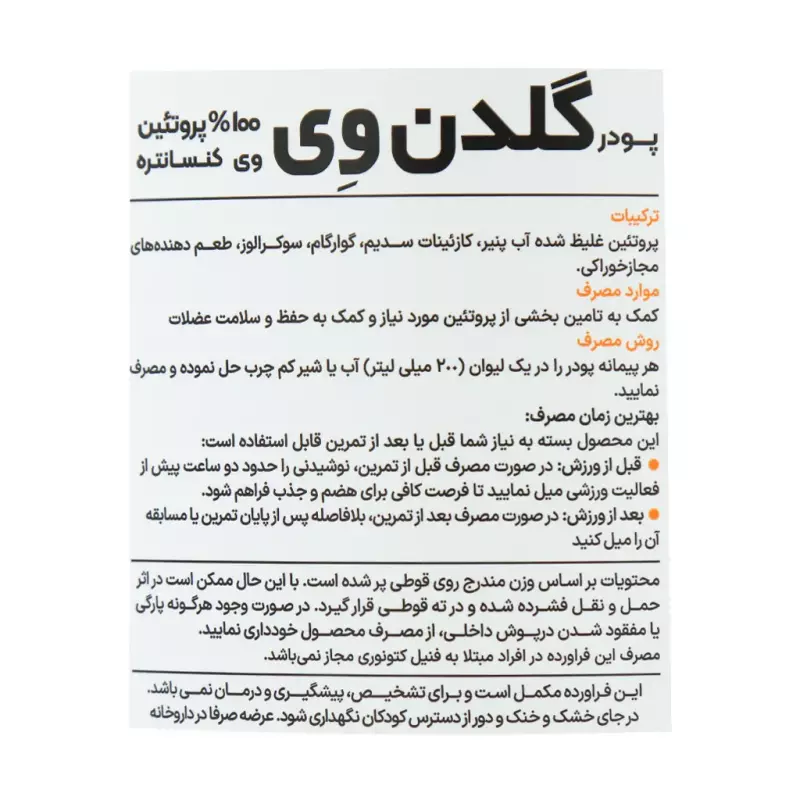 پودر گلدن وِی ۱۰۰% پروتئین
وی کنسانتره
ترکیبات
پروتئین غلیظ شده آب پنیر، کازئینات سدیم، گوارگام، سوکرالوز، طعم دهنده‌های
مجاز خوراکی.
موارد مصرف
کمک به تامین بخشی از پروتئین مورد نیاز و کمک به حفظ و سلامت عضلات
روش مصرف
هر پیمانه پودر را در یک لیوان (۲۰۰ میلی لیتر) آب یا شیر کم چرب حل نموده و مصرف
نمایید.
بهترین زمان مصرف:
این محصول بسته به نیاز شما قبل یا بعد از تمرین قابل استفاده است:
● قبل از ورزش: در صورت مصرف قبل از تمرین، نوشیدنی را حدود دو ساعت پیش از
فعالیت ورزشی میل نمایید تا فرصت کافی برای هضم و جذب فراهم شود.
● بعد از ورزش: در صورت مصرف بعد از تمرین، بلافاصله پس از پایان تمرین یا مسابقه
آن را میل کنید
محتویات بر اساس وزن مندرج روی قوطی پر شده است. با این حال ممکن است در اثر
حمل و نقل فشرده شده و در ته قوطی قرار گیرد. در صورت وجود هرگونه پارگی
یا مفقود شدن درپوش داخلی، از مصرف محصول خودداری نمایید.
مصرف این فراورده در افراد مبتلا به فنیل کتونوری مجاز نمی‌باشد.
این فراورده مکمل است و برای تشخیص، پیشگیری و درمان نمی باشد.
در جای خشک و خنک و دور از دسترس کودکان نگهداری شود. عرضه صرفا در داروخانه